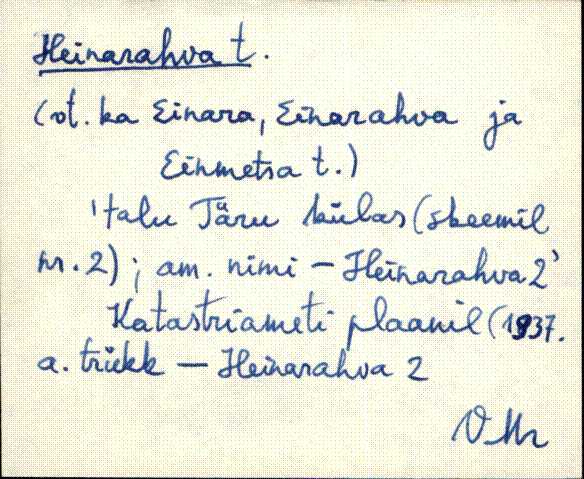 Heinarahva t.
(vt. ka Einara, Einarahva ja
Einmetsa t.)
'talu Täru külas (skeemil
nr. 2); am. nimi – Heinarahva 2'
Katastriameti plaanil (1937.
a. trükk – Heinarahva 2